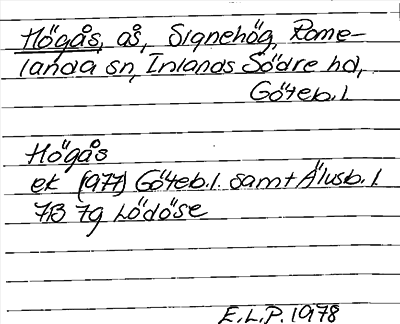 Högås, ås, Signehög, Rome-
landa sn, Inlands Södre hd,
Göteb. l.
Högås
ek (1977) Göteb. l. samt Älvsb. l.
7B 7g Lödöse
E.L.P. 1978